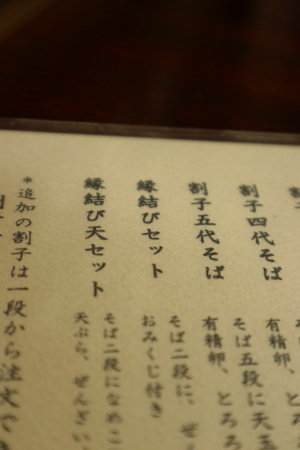 割子四代そば
有精卵、とろ
割子五代そば
そば五段に天玉
有精卵、とろろ
縁結びセット
そば二段に、ぜん
おみくじ付き
縁結び天セット
そば二段になめこ
天ぷら、ぜんざい
*追加の割子は一段から注文でき